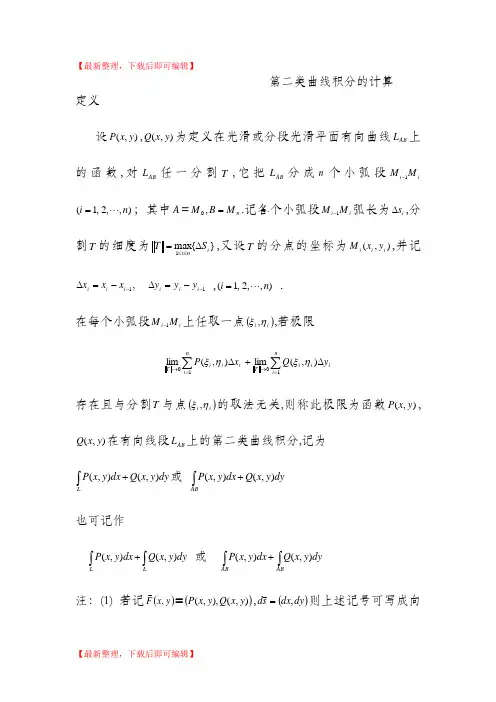 【最新整理，下载后即可编辑】
第二类曲线积分的计算
定义
设P(x, y),Q(x, y)为定义在光滑或分段光滑平面有向曲线L_{AB}上
的函数,对L_{AB}任一分割T,它把L_{AB}分成n个小弧段M_{i-1}M_i
(i=1, 2,⋯, n)；其中A=M_0, B=M_n.记各个小弧段M_{i-1}M_i弧长为Δs_i,分
割T的细度为‖T‖=max_{1≤i≤n}{ΔS_i},又设T的分点的坐标为M_i(x_i, y_i),并记
Δx_i = x_i − x_{i-1}, Δy_i = y_i − y_{i-1} ,(i=1, 2,⋯,n) .
在每个小弧段M_{i-1}M_i上任取一点(ξ_i,η_i),若极限
lim_{‖T‖→0} ∑_{i=1}^{n} P(ξ_i,η_i)Δx_i + lim_{‖T‖→0} ∑_{i=1}^{n} Q(ξ_i,η_i)Δy_i
存在且与分割T与点(ξ_i,η_i)的取法无关,则称此极限为函数P(x, y),
Q(x, y)在有向线段L_{AB}上的第二类曲线积分,记为
∫_L P(x, y)dx+Q(x, y)dy或 ∫_{AB} P(x, y)dx+Q(x, y)dy
也可记作
∫_L P(x, y)dx+∫_L Q(x, y)dy 或 ∫_{AB} P(x, y)dx+∫_{AB} Q(x, y)dy
注：(1) 若记F⃗(x, y)=(P(x, y),Q(x, y)),ds⃗=(dx,dy)则上述记号可写成向
【最新整理，下载后即可编辑】